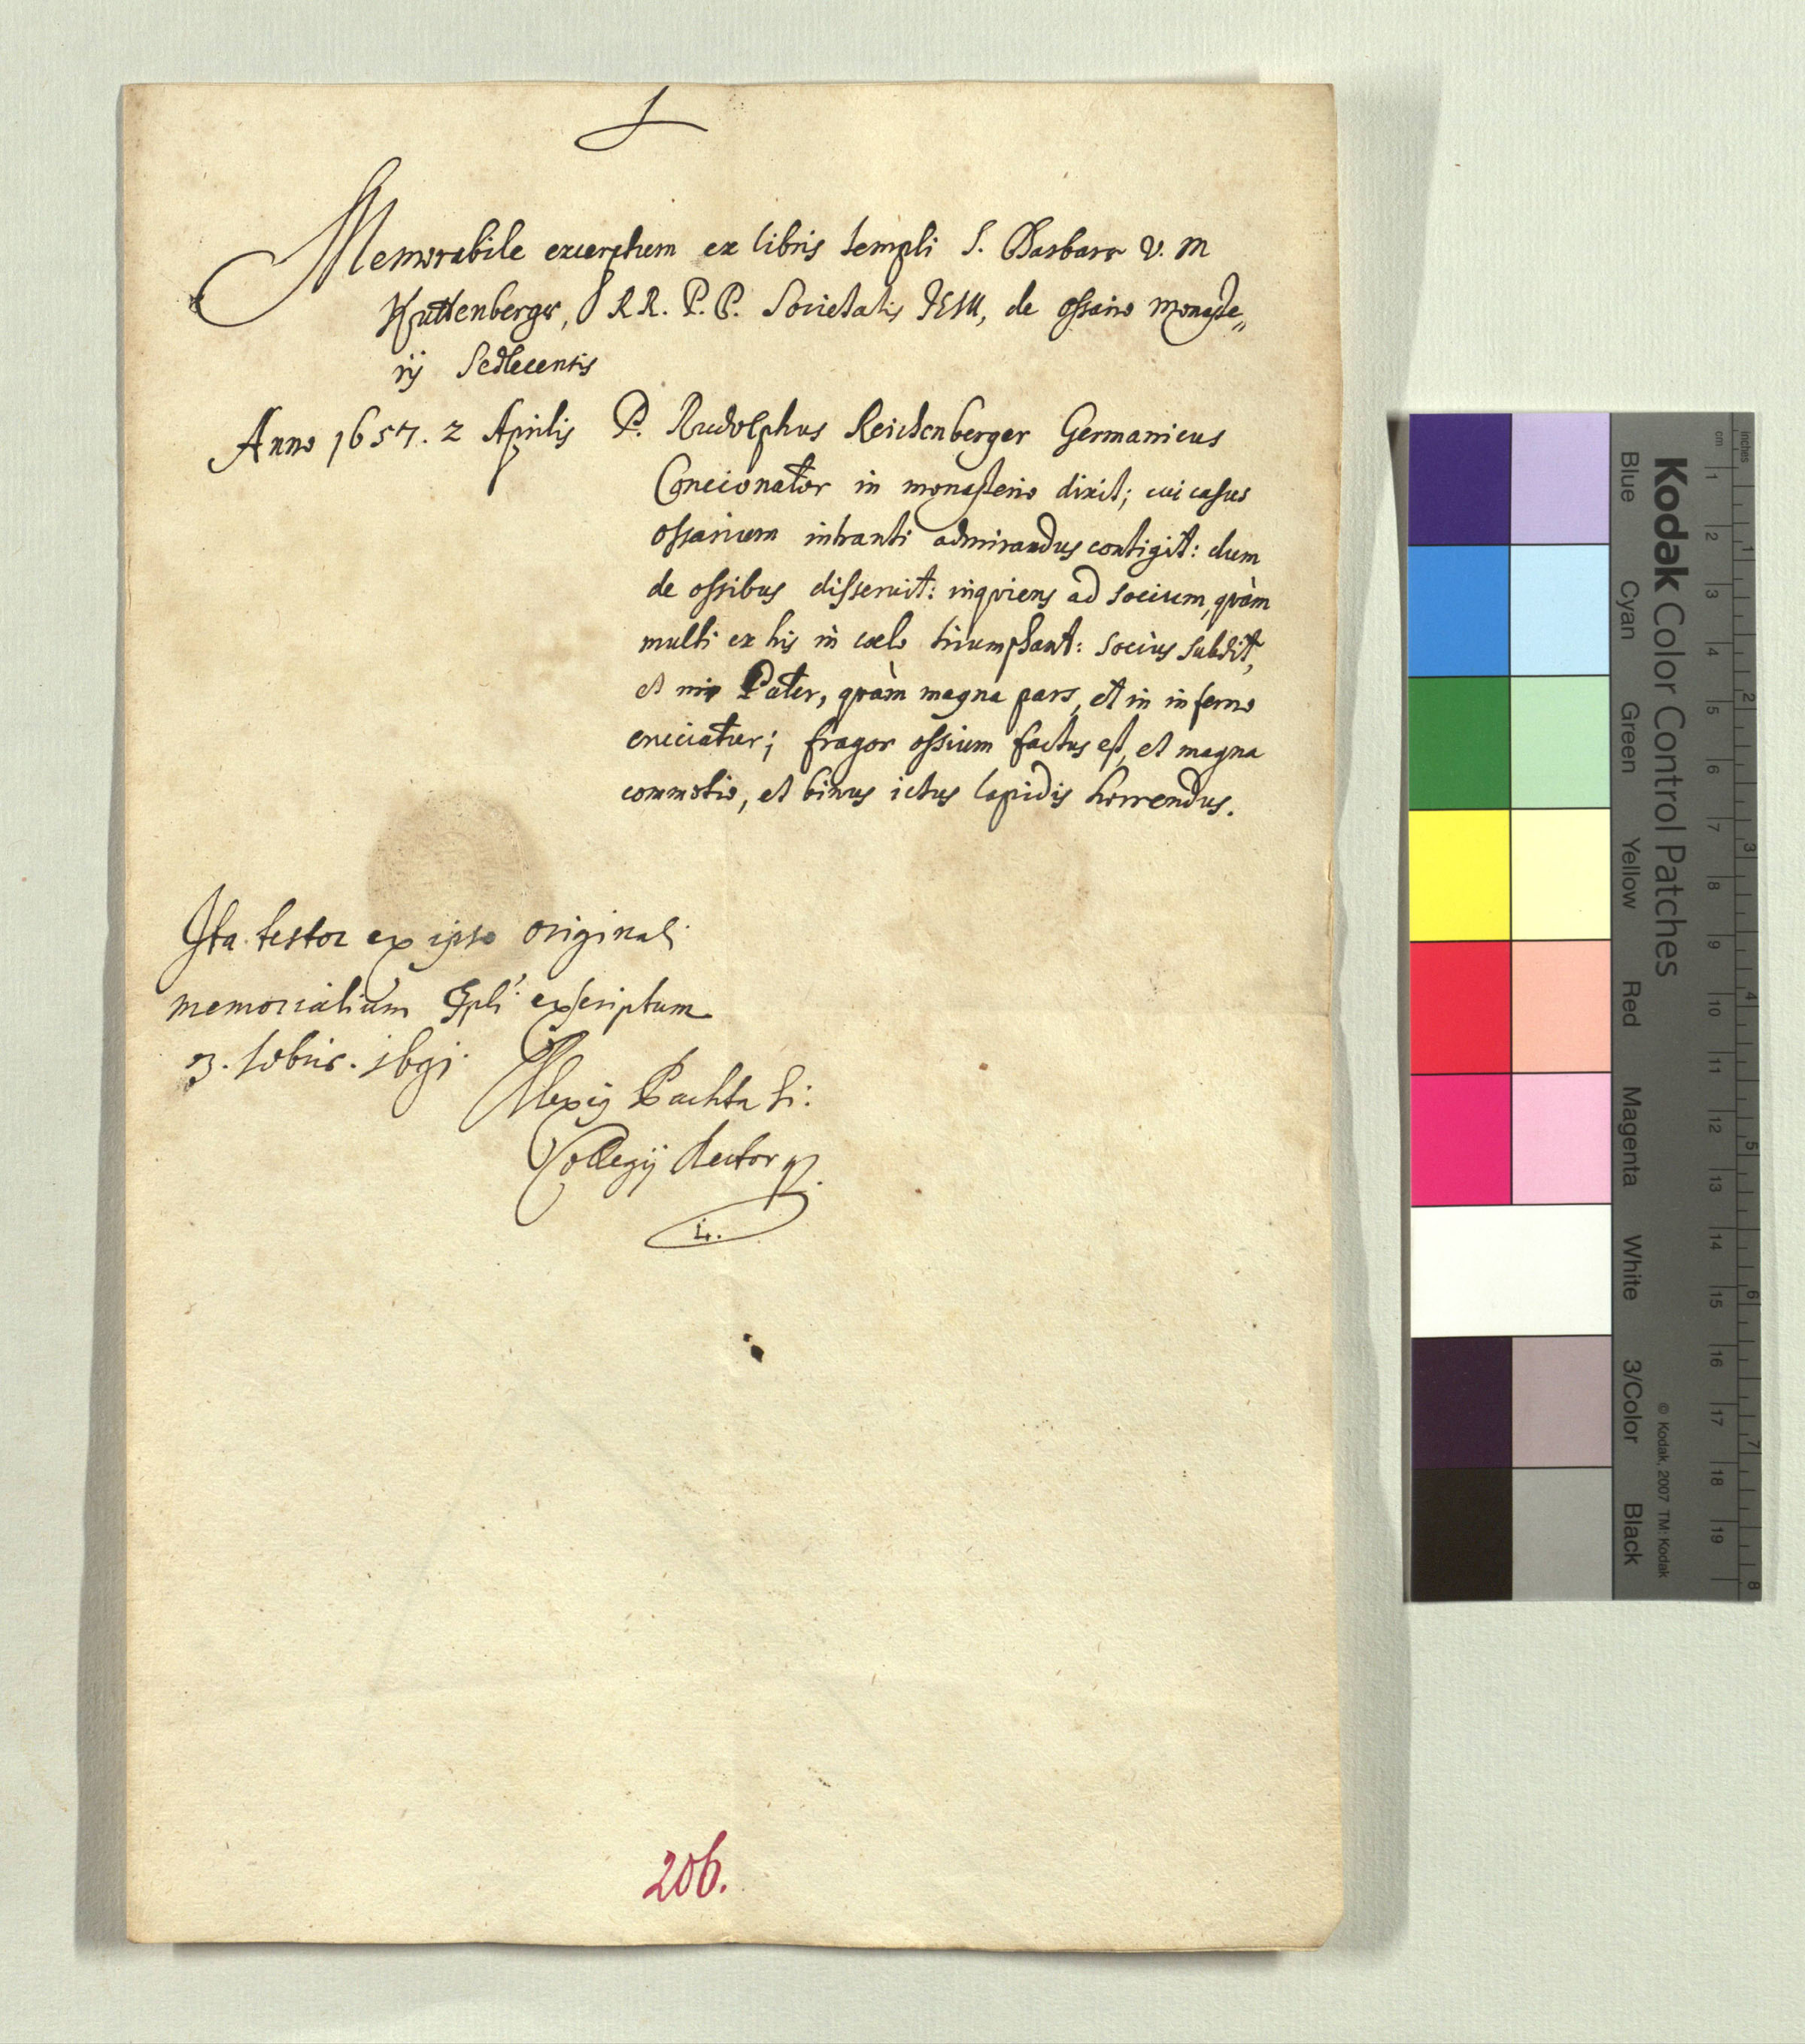 Memorabile excerptum ex libris templi S. Barbarae V. M
Kuttenbergae, RR. P.P. Societatis IESU, de ossario monaste„
rij Sedlecensis
Anno 1657. 2 Aprilis P. Rudolphus Reichenberger Germanicus
Concionator in monasterio dixit; cui casus
ossarium intranti admirandus contigit: dum
de ossibus disseruit: inqviens ad socium, qvàm
multi ex his in coelo triumphant: socius subdit,
et mi Pater, qvàm magna pars, et in inferno
cruciatur; fragor ossium factus est, et magna
commotio, et binus ictus lapidis horrendus.
Ita testor ex ipso originali
memorialium exscriptum
Pachta
Collegij Rector
206.
Kodak Color Control Patches
Blue Cyan Green Yellow Red Magenta White 3/Color Black
© Kodak, 2007 TM: Kodak
inches 1 2 3 4 5 6 7 8
cm 1 2 3 4 5 6 7 8 9 10 11 12 13 14 15 16 17 18 19